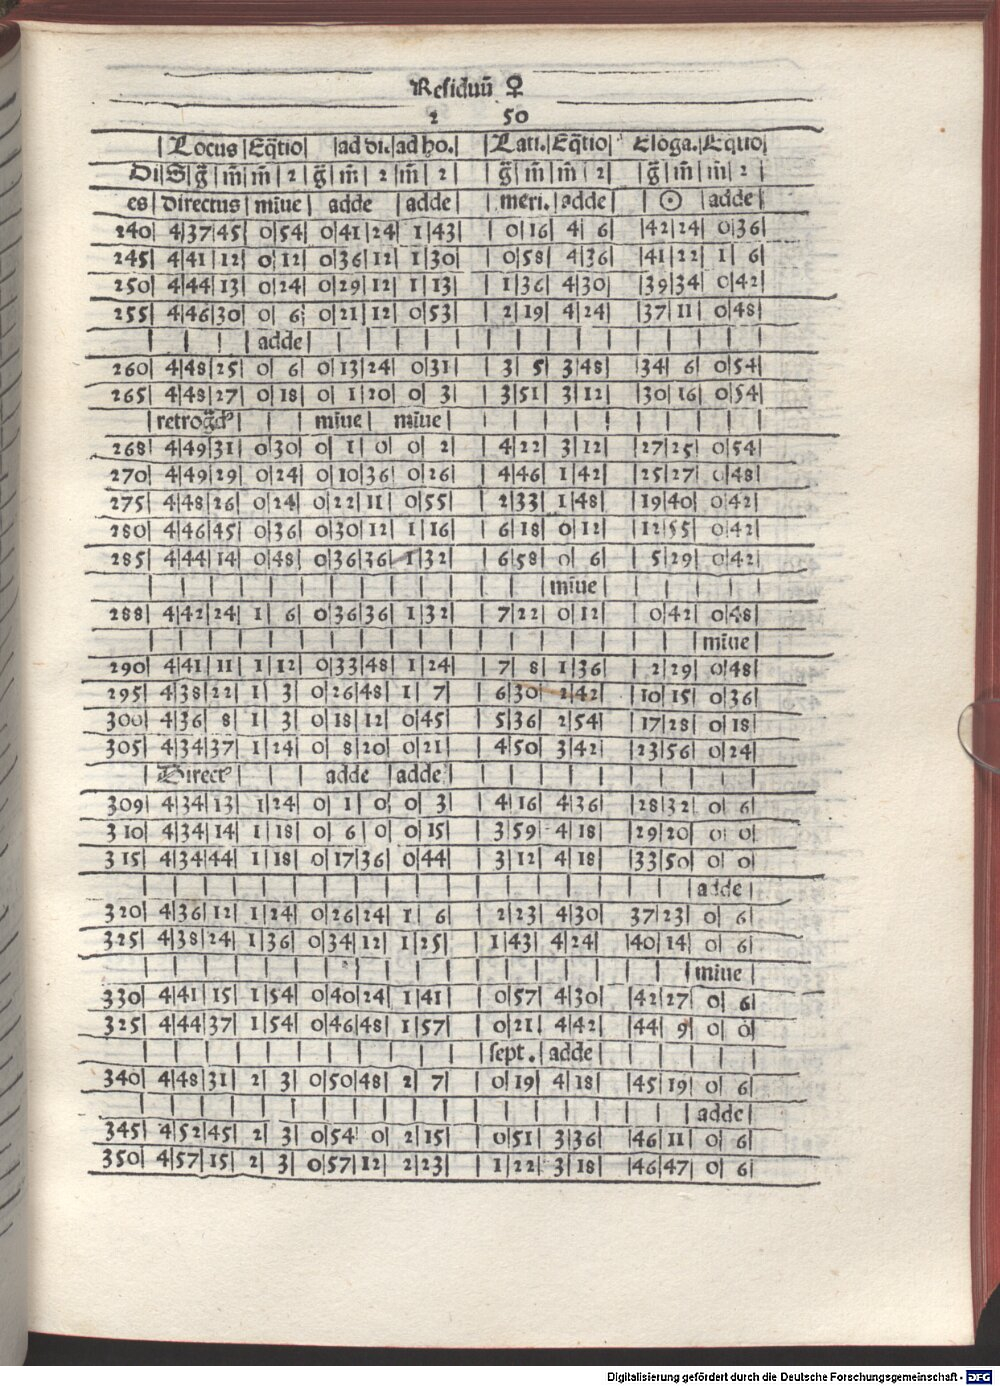 Residuū ♀
2 50
| Locus | Eq̄tio | ad di. | ad ho. | Lati. | Eq̄tio | Eloga. | Equo |
Di | S | g̃ | m̃ | m̃ | 2 | g̃ | m̃ | 2 | m̃ | 2 | g̃ | m̃ | m̃ | 2 | g̃ | m̃ | m̃ | 2 |
es | directus | mīue | adde | adde | meri. | adde | ☉ | adde |
240| 4|37|45| 0|54| 0|41|24| 1|43| 0|16| 4| 6| |42|24| 0|36|
245| 4|41|12| 0|12| 0|36|12| 1|30| 0|58| 4|36| |41|22| 1| 6|
250| 4|44|13| 0|24| 0|29|12| 1|13| 1|36| 4|30| |39|34| 0|42|
255| 4|46|30| 0| 6| 0|21|12| 0|53| 2|19| 4|24| |37|11| 0|48|
| adde |
260| 4|48|25| 0| 6| 0|13|24| 0|31| 3| 5| 3|48| |34| 6| 0|54|
265| 4|48|27| 0|18| 0| 1|20| 0| 3| 3|51| 3|12| |30|16| 0|54|
| retrog̃d⁹ | mīue | mīue |
268| 4|49|31| 0|30| 0| 1| 0| 0| 2| 4|22| 3|12| |27|25| 0|54|
270| 4|49|29| 0|24| 0|10|36| 0|26| 4|46| 1|42| |25|27| 0|48|
275| 4|48|26| 0|24| 0|22|11| 0|55| 2|33| 1|48| |19|40| 0|42|
280| 4|46|45| 0|36| 0|30|12| 1|16| 6|18| 0|12| |12|55| 0|42|
285| 4|44|14| 0|48| 0|36|36| 1|32| 6|58| 0| 6| | 5|29| 0|42|
| mīue |
288| 4|42|24| 1| 6| 0|36|36| 1|32| 7|22| 0|12| | 0|42| 0|48|
| mīue |
290| 4|41|11| 1|12| 0|33|48| 1|24| 7| 8| 1|36| | 2|29| 0|48|
295| 4|38|22| 1| 3| 0|26|48| 1| 7| 6|30| 2|42| |10|15| 0|36|
300| 4|36| 8| 1| 3| 0|18|12| 0|45| 5|36| 2|54| |17|28| 0|18|
305| 4|34|37| 1|24| 0| 8|20| 0|21| 4|50| 3|42| |23|56| 0|24|
| Direct⁹ | adde | adde |
309| 4|34|13| 1|24| 0| 1| 0| 0| 3| 4|16| 4|36| |28|32| 0| 6|
310| 4|34|14| 1|18| 0| 6| 0| 0|15| 3|59| 4|18| |29|20| 0| 0|
315| 4|34|44| 1|18| 0|17|36| 0|44| 3|12| 4|18| |33|50| 0| 0|
| adde |
320| 4|36|12| 1|24| 0|26|24| 1| 6| 2|23| 4|30| 37|23| 0| 6|
325| 4|38|24| 1|36| 0|34|12| 1|25| 1|43| 4|24| |40|14| 0| 6|
| mīue |
330| 4|41|15| 1|54| 0|40|24| 1|41| 0|57| 4|30| |42|27| 0| 6|
325| 4|44|37| 1|54| 0|46|48| 1|57| 0|21| 4|42| |44| 9| 0| 0|
| sept. | adde |
340| 4|48|31| 2| 3| 0|50|48| 2| 7| 0|19| 4|18| |45|19| 0| 6|
| adde |
345| 4|52|45| 2| 3| 0|54| 0| 2|15| 0|51| 3|36| |46|11| 0| 6|
350| 4|57|15| 2| 3| 0|57|12| 2|23| 1|22| 3|18| |46|47| 0| 6|
Digitalisierung gefördert durch die Deutsche Forschungsgemeinschaft - DFG